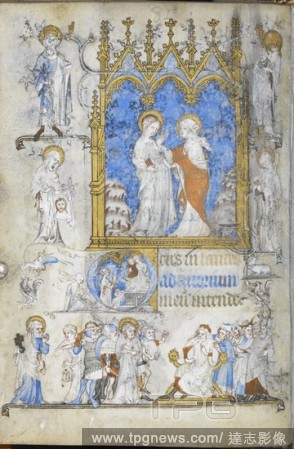 eus in
adiutorium
meu intende
TPG
www.tpgnews.com / 達志影像